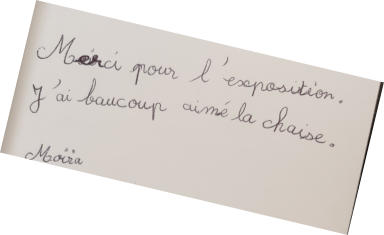 Merci pour l'exposition.
J'ai baucoup aimé la chaise.
Moïra